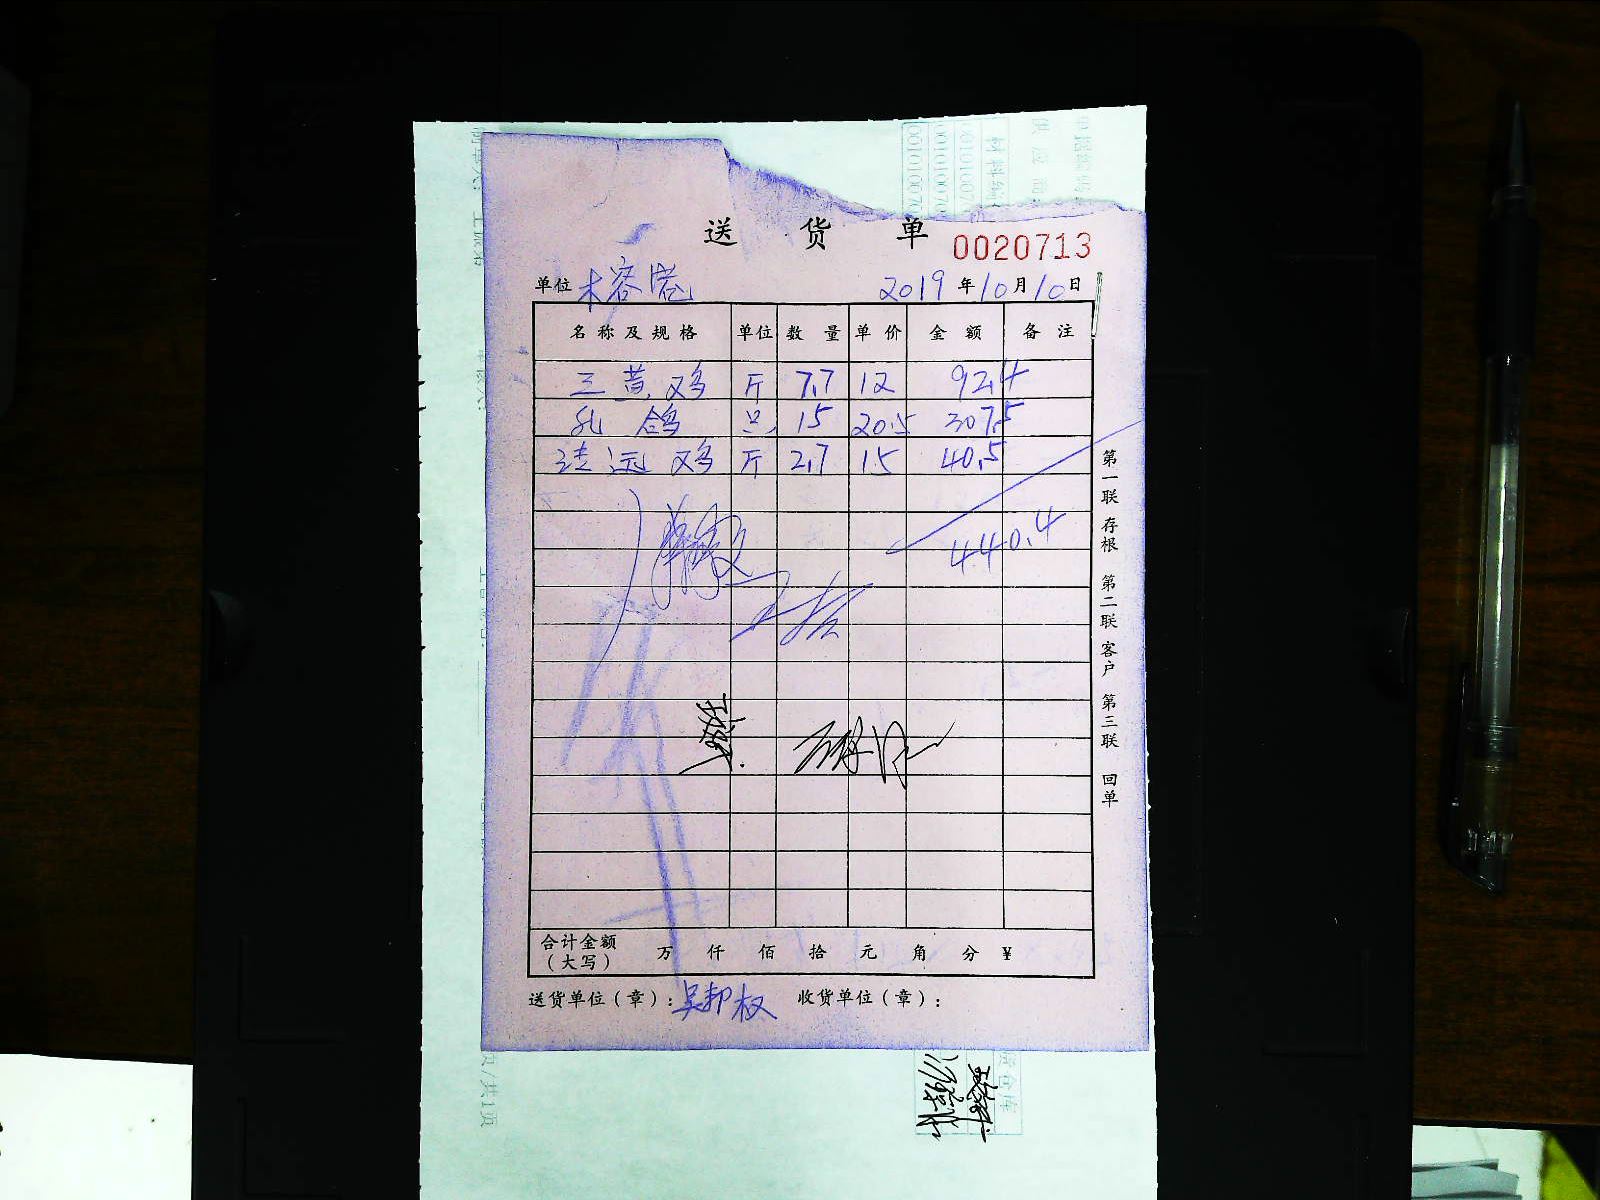 送货单
0020713
单位 木容菴 2019年10月10日
名称及规格 单位 数量 单价 金额 备注
三黄鸡 斤 7.7 12 92.4
乳鸽 只 15 20.5 307.5
清远鸡 斤 2.7 15 40.5
440.4
合计金额（大写） 万 仟 佰 拾 元 角 分 ¥
送货单位（章）：吴邦权 收货单位（章）：
第一联 存根 第二联 客户 第三联 回单